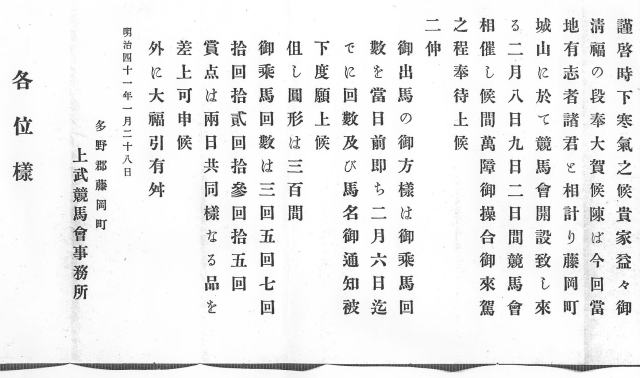 謹啓時下寒氣之候貴家益々御
淸福の段奉大賀候陳ば今回當
地有志者諸君と相計り藤岡町
城山に於て競馬會開設致し來
る二月八日九日二日間競馬會
相催し候間萬障御操合御來駕
之程奉待上候
二伸
御出馬の御方樣は御乘馬回
數を當日前即ち二月六日迄
でに回數及び馬名御通知被
下度願上候
但し圓形は三百間
御乘馬回數は三回五回七回
拾回拾貳回拾參回拾五回
賞点は兩日共同樣なる品を
差上可申候
外に大福引有舛
明治四十一年一月二十八日
多野郡藤岡町
上武競馬會事務所
各位樣